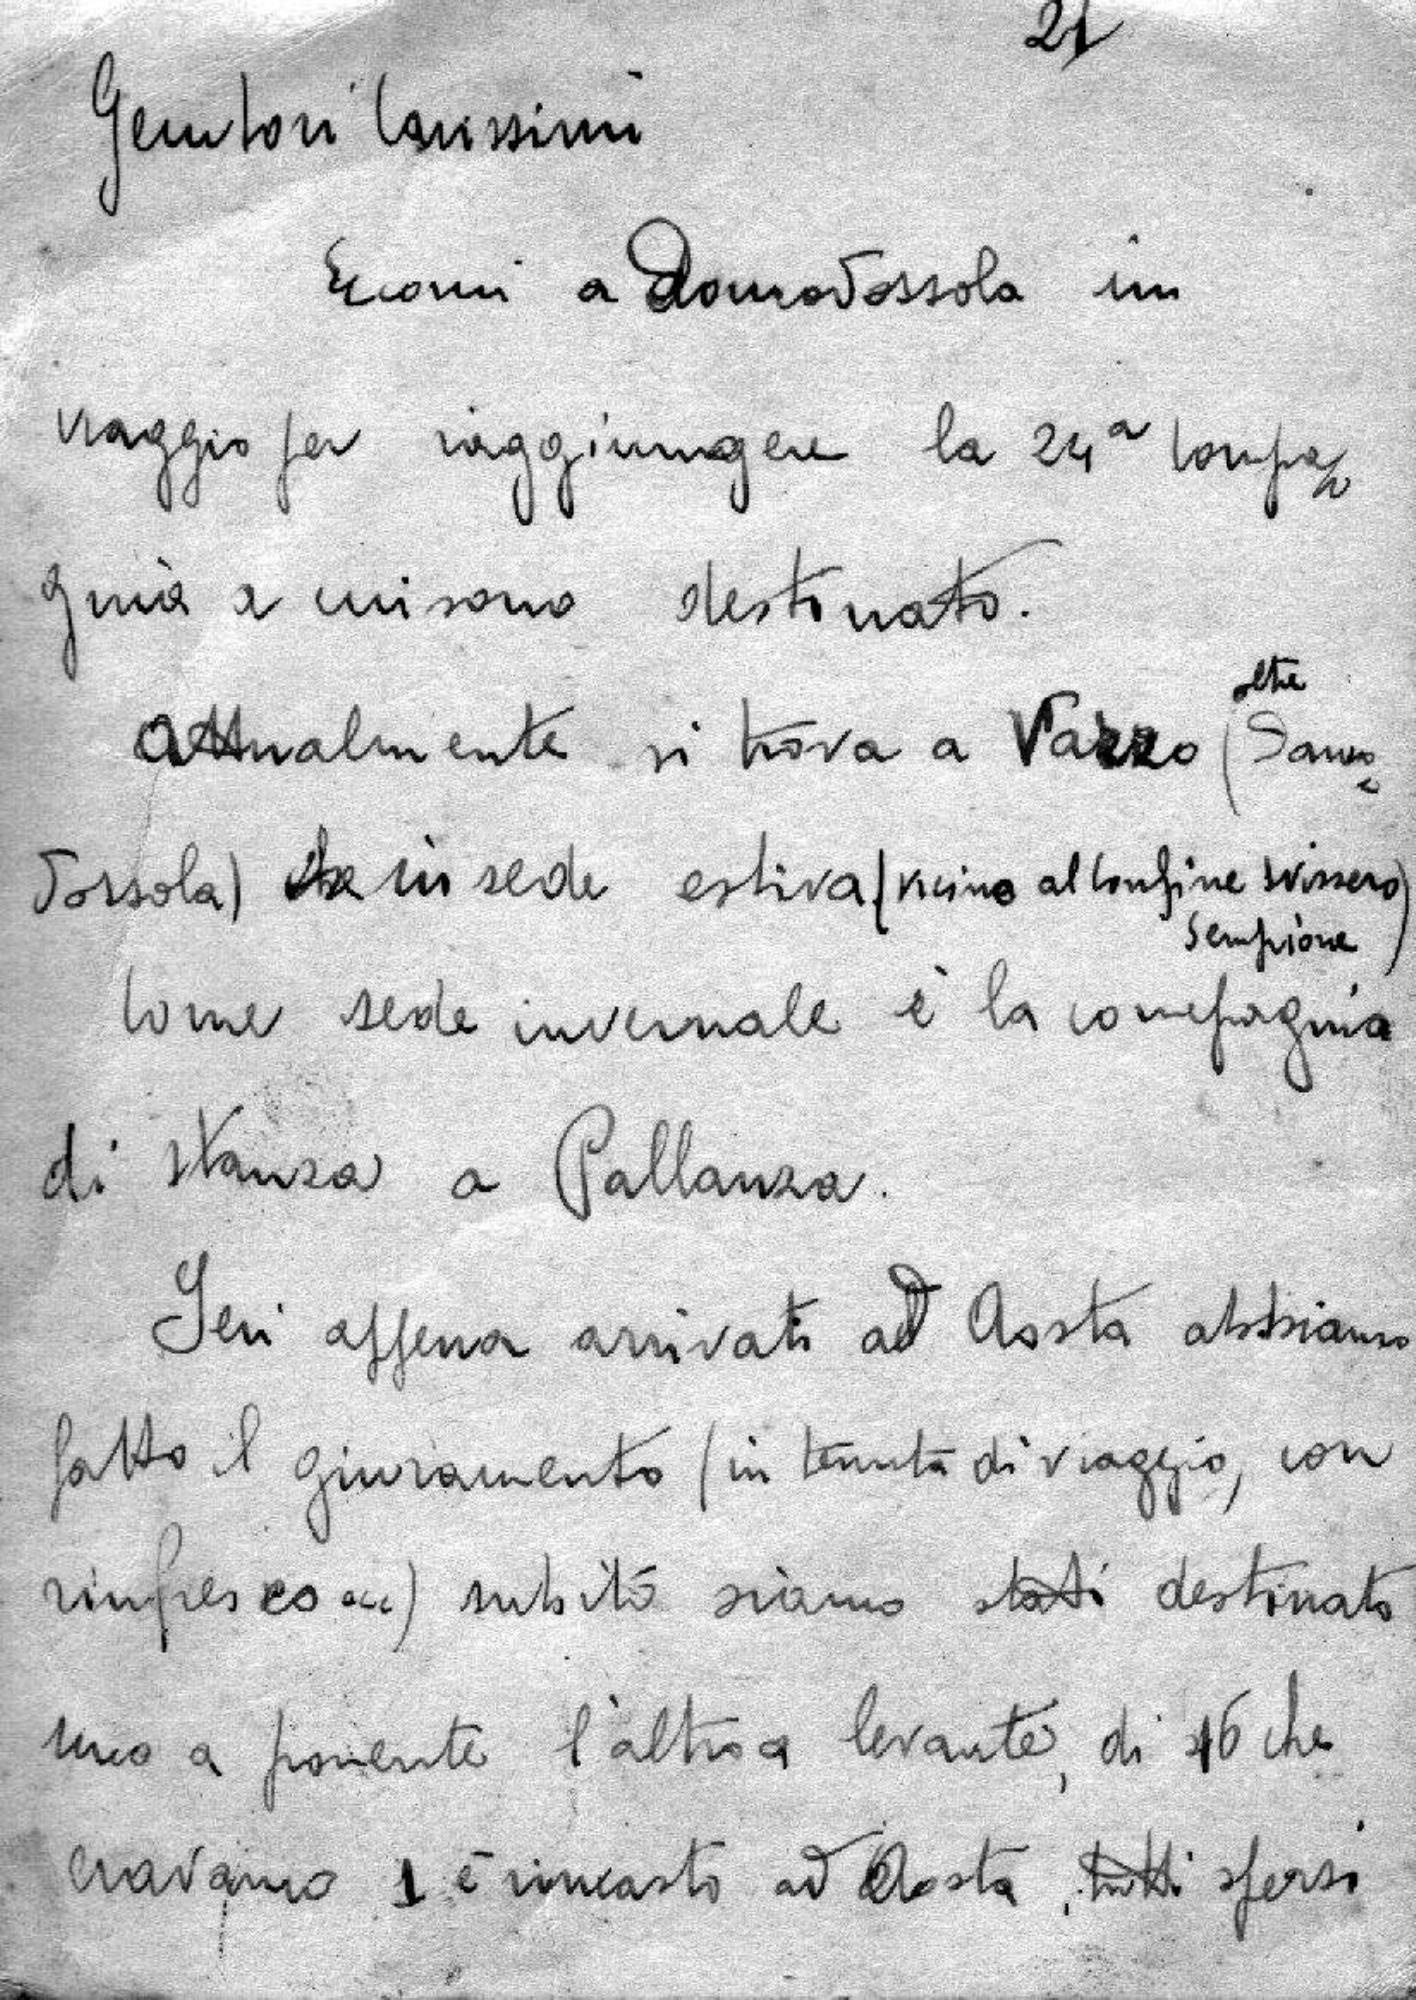 21
Genitori Carissimi
Eccomi a Domodossola in
viaggio per raggiungere la 24ª Compa
gnia a cui sono destinato.
Attualmente si trova a Varzo (oltre Domo
dossola) in sede estiva (vicino al Confine Svizzero)
Sempione)
Come sede invernale è la compagnia
di stanza a Pallanza.
Ieri appena arrivati ad Aosta abbiamo
fatto il giuramento (in tenuta di viaggio, con
rinfresco ecc) subito siamo stati destinato
uno a ponente l'altro a levante, di 16 che
eravamo 1 è rimasto ad Aosta, tutti spersi